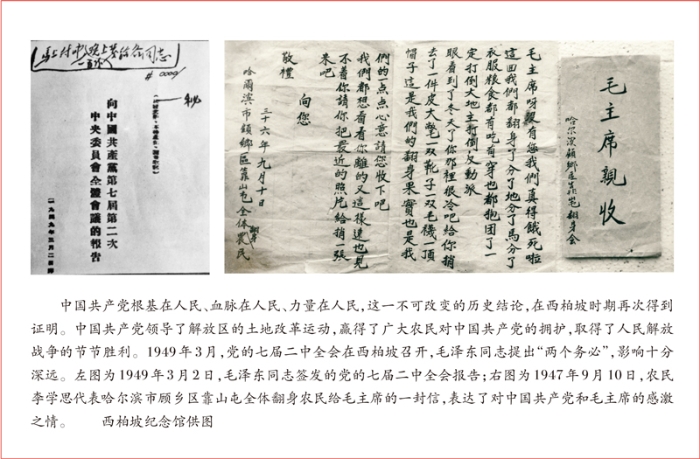 向中國共產黨第七屆第二次
中央委員會全體會議的報告
毛主席親收
哈尔濱顧鄉區靠山屯翻身会
毛主席呀沒有您我們真得餓死啦
這回我們都翻身了分了地分了馬分了
衣服粮食都有吃有穿也都抱团了一
定打倒大地主打倒反動派
眼看到了冬天了你那裡很冷吧給你捎
去了一件皮大氅一双靴子一双毛襪一頂
帽子這是我們的翻身果實也是我
們的一点点心意請您收下吧
我們都想看看你離的又這樣遠也見
不着你請你把最近的照片給捎一張
來吧
向您
敬禮
三十六年九月十日
哈爾濱市顧鄉區靠山屯全体翻身農民
中国共产党根基在人民、血脉在人民、力量在人民,这一不可改变的历史结论,在西柏坡时期再次得到
证明。中国共产党领导了解放区的土地改革运动,赢得了广大农民对中国共产党的拥护,取得了人民解放
战争的节节胜利。1949年3月,党的七届二中全会在西柏坡召开,毛泽东同志提出“两个务必”,影响十分
深远。左图为1949年3月2日,毛泽东同志签发的党的七届二中全会报告;右图为1947年9月10日,农民
李学思代表哈尔滨市顾乡区靠山屯全体翻身农民给毛主席的一封信,表达了对中国共产党和毛主席的感激
之情。 西柏坡纪念馆供图